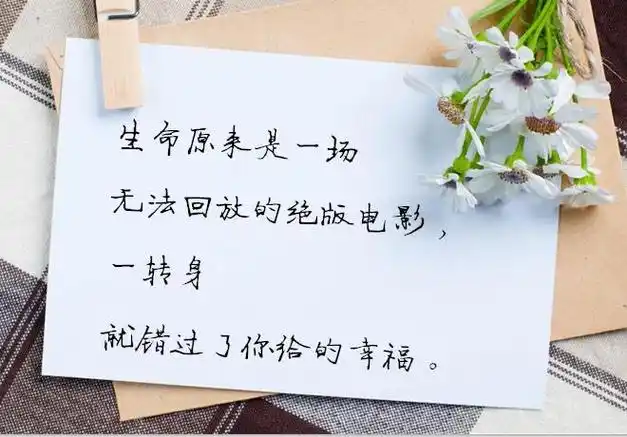 生命原来是一场
无法回放的绝版电影，
一转身
就错过了你给的幸福。